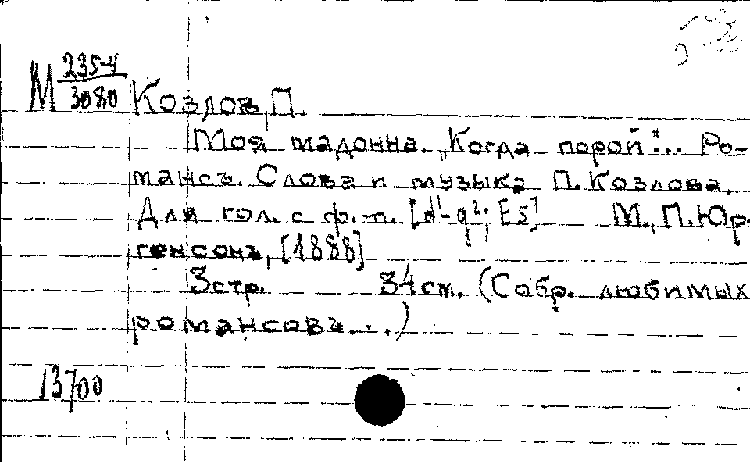 М 235-4
3080
Козлов, П.
Моя мадонна. „Когда порой"... Ро-
мансъ. Слова и музыка П. Козлова.
Для гол. с ф.-п. [d¹-g²; Es] М., П. Юр-
генсонъ, [1888]
3 стр. 34 см. (Собр. любимых
романсовъ...)
13700